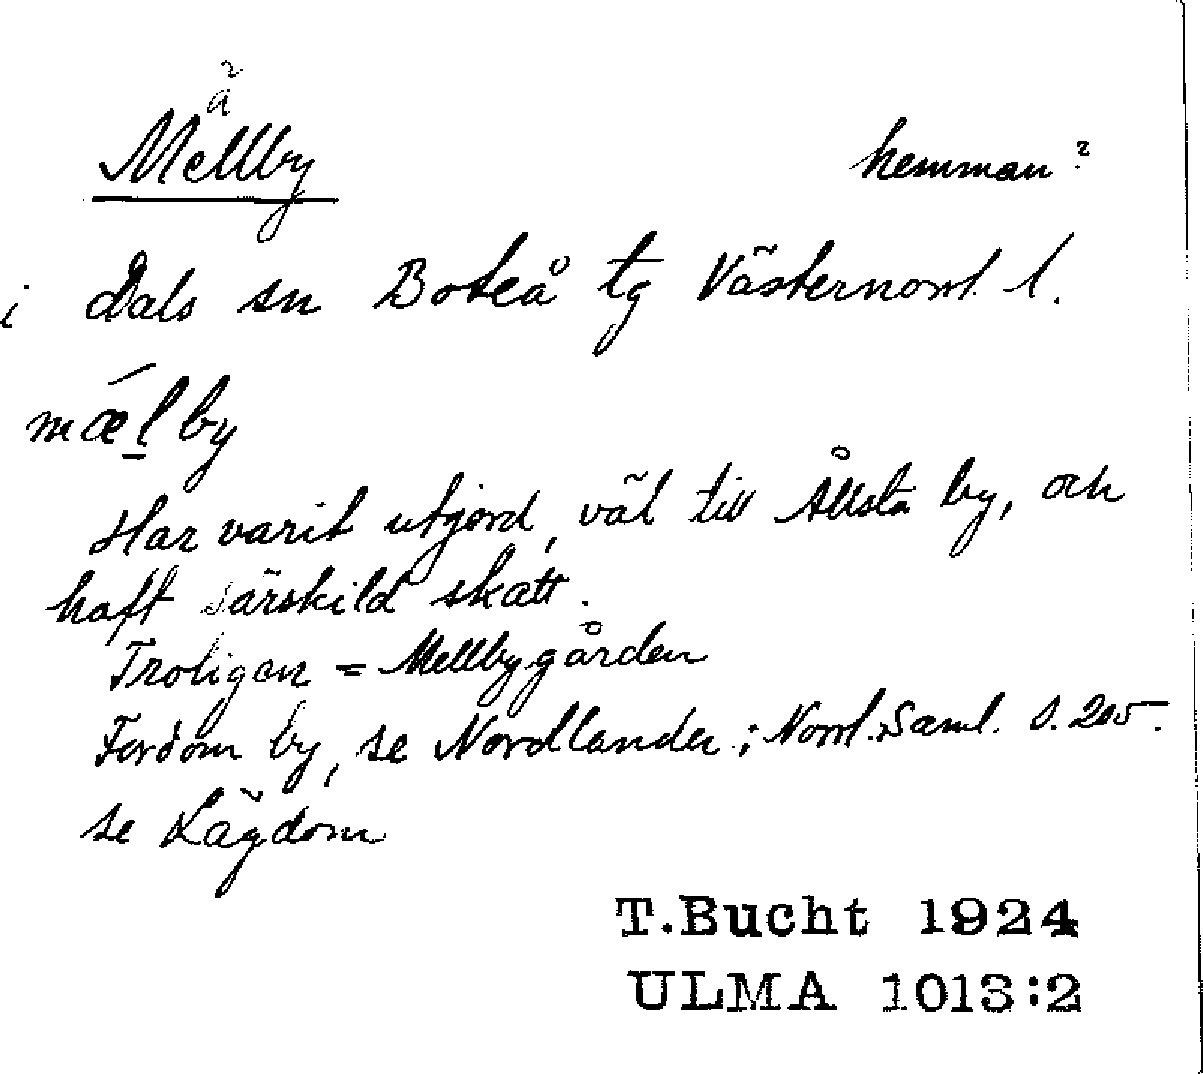 ä
Mellby hemman?
i Dals sn Boteå tg Västernorrl. l.
mæl by
Har varit utjord, väl till Ållsta by, och
haft särskild skatt.
Troligen = Mellbygården
Fordom by, se Nordlander; Norrl. Saml. s. 205.
se Lägdom
T.Bucht 1924
ULMA 1013:2